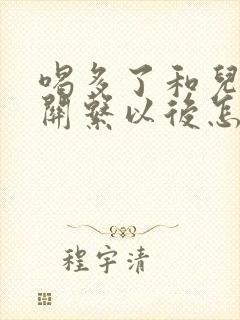 喝多了和兒
關繫以後怎
程宇清